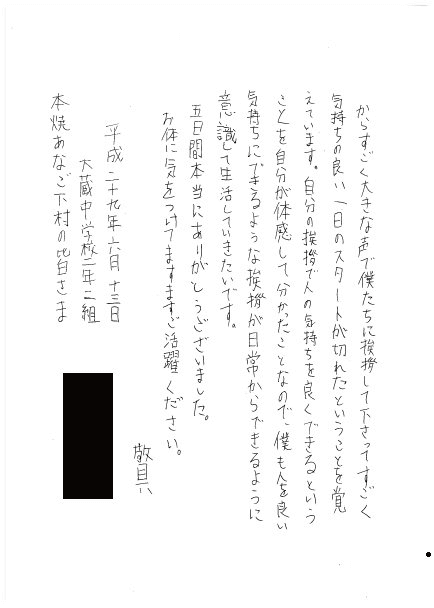 からすごく大きな声で僕たちに挨拶して下さってすごく
気持ちの良い一日のスタートが切れたということを覚
えています。自分の挨拶で人の気持ちを良くできるという
ことを自分が体感して分かったことなので、僕も人を良い
気持ちにできるような挨拶が日常からできるように
意識して生活していきたいです。
五日間本当にありがとうございました。
お体に気をつけてますますご活躍ください。
敬具
平成二十九年六月十三日
大蔵中学校二年二組
本焼あなご下村の皆さま